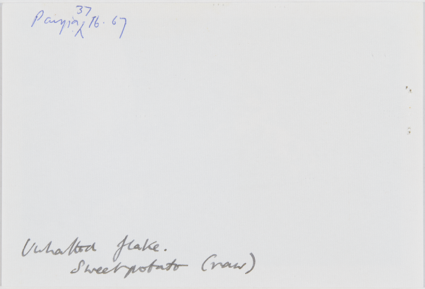 37
76.67
Unhafted flake.
Sweet potato (raw)